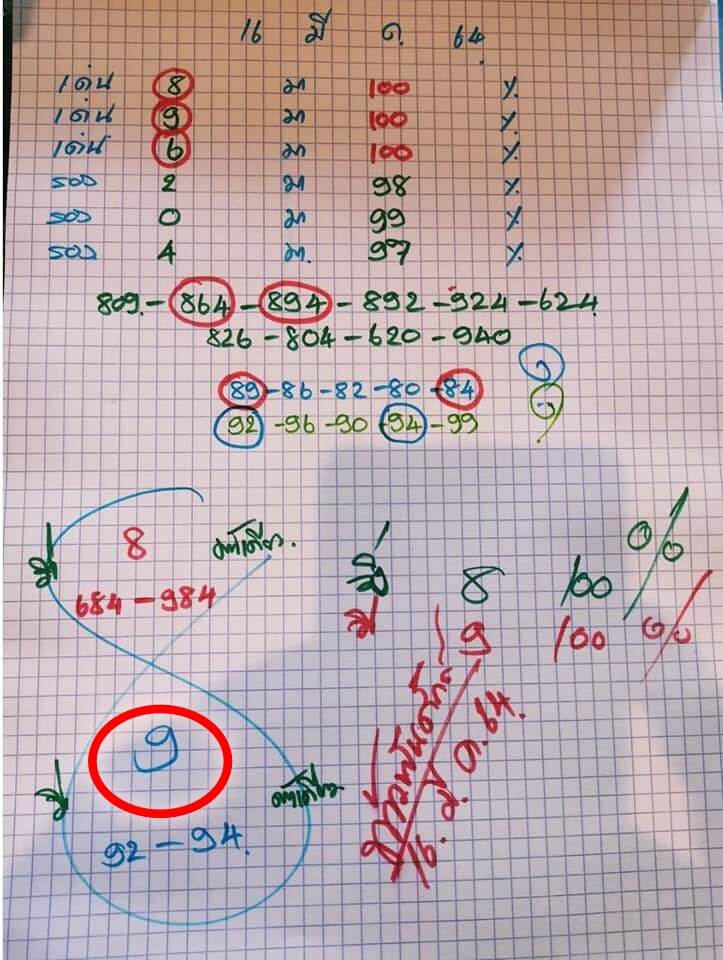 16 มี ค. 64.
เด่น 8 มา 100 %
เด่น 9 มา 100 %
เด่น 6 มา 100 %
รอง 2 มา 98 %
รอง 0 มา 99 %
รอง 4 มา. 97 %
809 - 864 - 894 - 892 - 924 - 624
826 - 804 - 620 - 940
89 - 86 - 82 - 80 - 84
92 - 96 - 90 - 94 - 99
8
684 - 984
8 100 %
9 100 %
9
92 - 94.